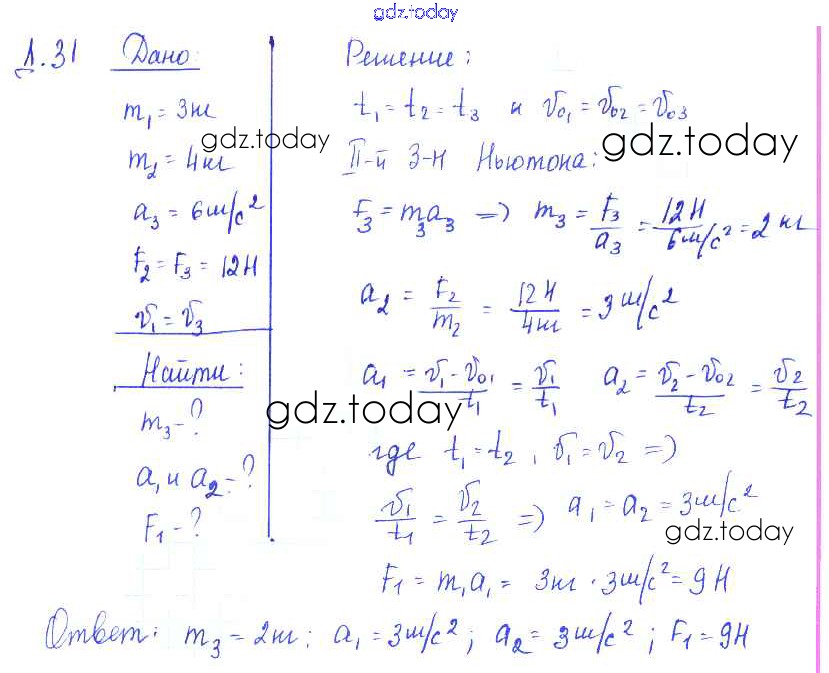 gdz.today
Д.31 Дано:
m₁ = 3кг
gdz.today
m₂ = 4кг
a₃ = 6м/с²
F₂ = F₃ = 12Н
v₁ = v₃
Найти:
m₃ - ?
a₁ и a₂ - ?
F₁ - ?
Решение:
t₁ = t₂ = t₃ и v₀₁ = v₀₂ = v₀₃
gdz.today
II-й З-н Ньютона:
F₃ = m₃a₃ => m₃ = F₃/a₃ = 12Н/6м/с² = 2 кг
a₂ = F₂/m₂ = 12Н/4кг = 3м/с²
a₁ = v₁ - v₀₁/t₁ = v₁/t₁ a₂ = v₂ - v₀₂/t₂ = v₂/t₂
gdz.today
где t₁ = t₂, v₁ = v₂ =>
v₁/t₁ = v₂/t₂ => a₁ = a₂ = 3м/с²
gdz.today
F₁ = m₁a₁ = 3кг · 3м/с² = 9Н
Ответ: m₃ = 2кг; a₁ = 3м/с²; a₂ = 3м/с²; F₁ = 9Н